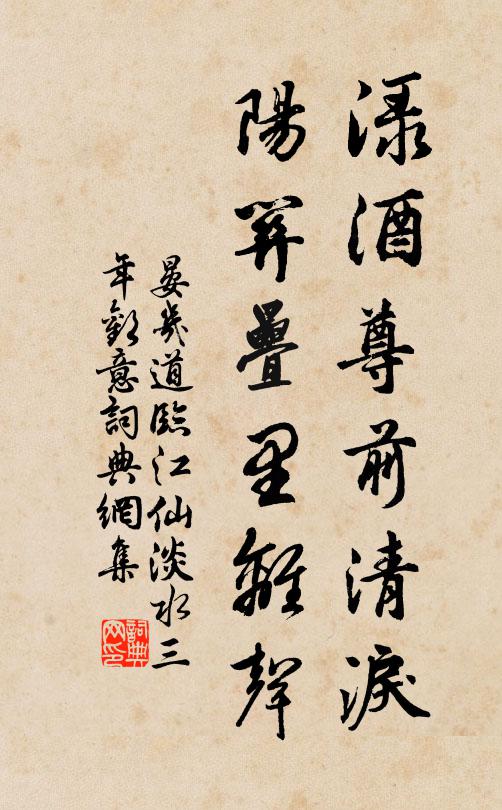 渌酒尊前清淚
陽關疊里離聲
晏幾道臨江仙淡水三
年歡意詞典網集
詞典网印